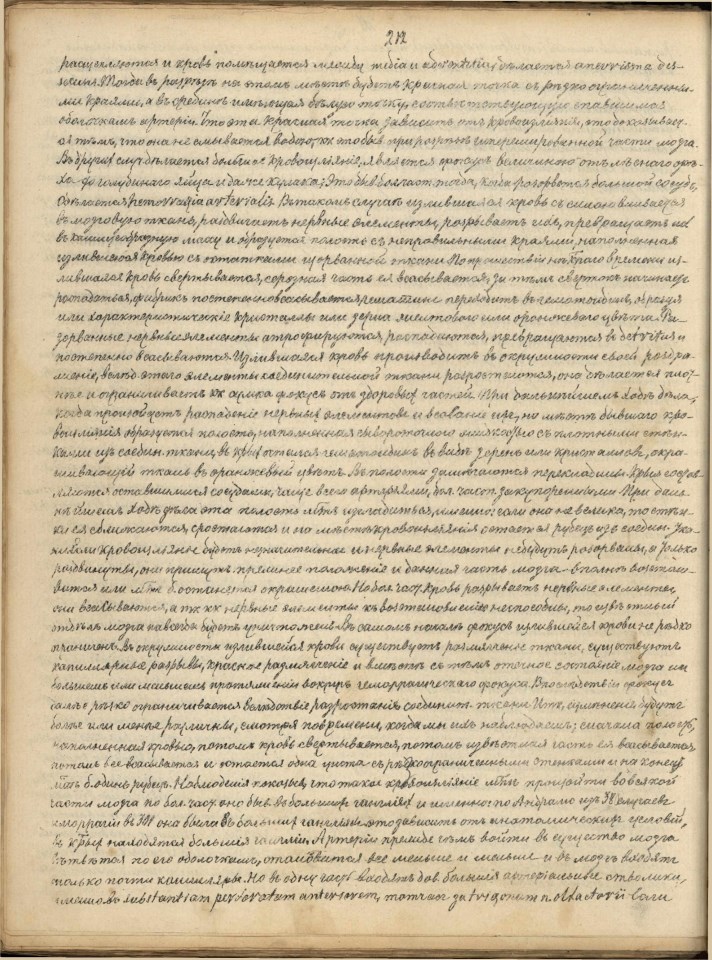 212
расщепляются и кровь помещается между media и adventitia, делается aneurisma dis-
Тогда въ разрѣзѣ на этомъ мѣстѣ будетъ красная точка съ рѣзко ограниченны-
ми краями, а въ срединѣ имѣющая бѣлую точку, соотвѣтствующую спавшимся
оболочкамъ артеріи. Что эта красная точка зависитъ отъ кровоизліянія, это доказывает-
ся тѣмъ, что она не смывается водою, какъ это быв. при разрѣзѣ гиперемированной части мозга.
Въ другихъ случ. дѣлается большое кровоизліяніе, является фокусъ величиною отъ мѣнаго орѣ-
ха до голубинаго яйца и даже кулака; Это бываетъ тогда, когда разорвется большой сосудъ,
дѣлается arterialis. Въ такомъ случаѣ излившаяся кровь съ силою вливается
въ мозговую ткань, раздвигаетъ нервные элементы, разрываетъ ихъ, превращаетъ ихъ
въ кашицеобразную массу и образуется полость съ неправильными краями, наполненная
излившеюся кровью съ остатками изорванной ткани. По прошествіи нѣктраго времени из-
лившаяся кровь свертывается, серозная часть ея всасывается, за тѣмъ свертокъ начинаетъ
распадаться, фибринъ постепенно всасывается, гематинъ переходитъ въ гематоидинъ, образуя
или характеристическіе кристаллы или зерна желтоваго или оранжеваго цвѣта. Ра-
зорванные нервные элементы атрофируются, распадаются, превращаются въ detritus и
постепенно всасываются. Излившаяся кровь производитъ въ окружности своей раздра-
женіе, вслѣд. этого элементы соединительной ткани разростаются, она дѣлается плот-
нѣе и ограничиваетъ фокусъ отъ здоровыхъ частей. При дальнѣйшемъ ходѣ дѣла,
когда произойдетъ распаденіе нервныхъ элементовъ и всасываніе ихъ, на мѣстѣ бывшаго кро-
воизліянія образуется полость, наполненная сывороточною жидкостью съ плотными стѣн-
ками изъ соедин. ткани, въ крыхъ остался гематоидинъ въ видѣ зеренъ или кристалловъ, окра-
шивающій ткань въ оранжевый цвѣтъ. Въ полости замѣчаются перекладины, крыя состав-
ляются оставшимися сосудами, чаще всего артеріями, бол. част. закупоренными. При даль-
нѣйшемъ ходѣ дѣла эта полость м. изгладиться, именно: если она не велика, то стѣн-
ки ея сближаются, сростаются и на мѣстѣ кровоизліянія остается рубецъ изъ соедин. тка-
ни. Если кровоизліяніе будетъ незначительное и нервные элементы не будутъ разорваны, а только
раздвинуты, они примутъ прежнее положеніе и данная часть мозга вполнѣ возстано-
вится или останется окрашенною. Но бол. част. кровь разрываетъ нервные элементы,
они всасываются, а нервные элементы къ возстановленію неспособны, то извѣстный
отдѣлъ мозга навсегда будетъ уничтоженъ. Въ самомъ началѣ фокусъ излившейся крови не рѣзко
ограниченъ. Въ окружности излившейся крови существуетъ размягченіе ткани, существуютъ
капиллярные разрывы, красное размягченіе и вмѣстѣ съ тѣмъ отечное состояніе мозга на
большемъ или меньшемъ протяженіи вокругъ геморрагическаго фокуса. Впослѣдствіи фокусъ
болѣе рѣзко ограничивается вслѣдствіе разростанія соединит. ткани. Итакъ, измѣненія будутъ
болѣе или менѣе различны, смотря по времени, когда мы ихъ наблюдаемъ: сначала полость,
наполненная кровью, потомъ кровь свертывается, потомъ извѣстная часть ея всасывается,
потомъ все всасывается и остается одна киста съ рѣзко ограниченными стѣнками и на конецъ
м. быть одинъ рубецъ. Наблюденія показыв., что такое кровоизліяніе м. произойти во всякой
части мозга, но бол. част. оно быв. въ большихъ гангліяхъ и именно: по Андралю изъ случаевъ
геморрагіи въ она была въ большихъ гангліяхъ, это зависитъ отъ анатомическихъ условій,
въ крыхъ находятся большія гангліи. Артеріи прежде чѣмъ войти въ существо мозга
вѣтвятся по его оболочкамъ, становятся все меньше и меньше и въ мозгъ входятъ
только почти капилляры. Но въ одну часть входятъ дов. большіе артеріальные стволики,
именно въ substantiam perforatam anteriorem, тотчасъ за trigonum n. olfactorii сзади